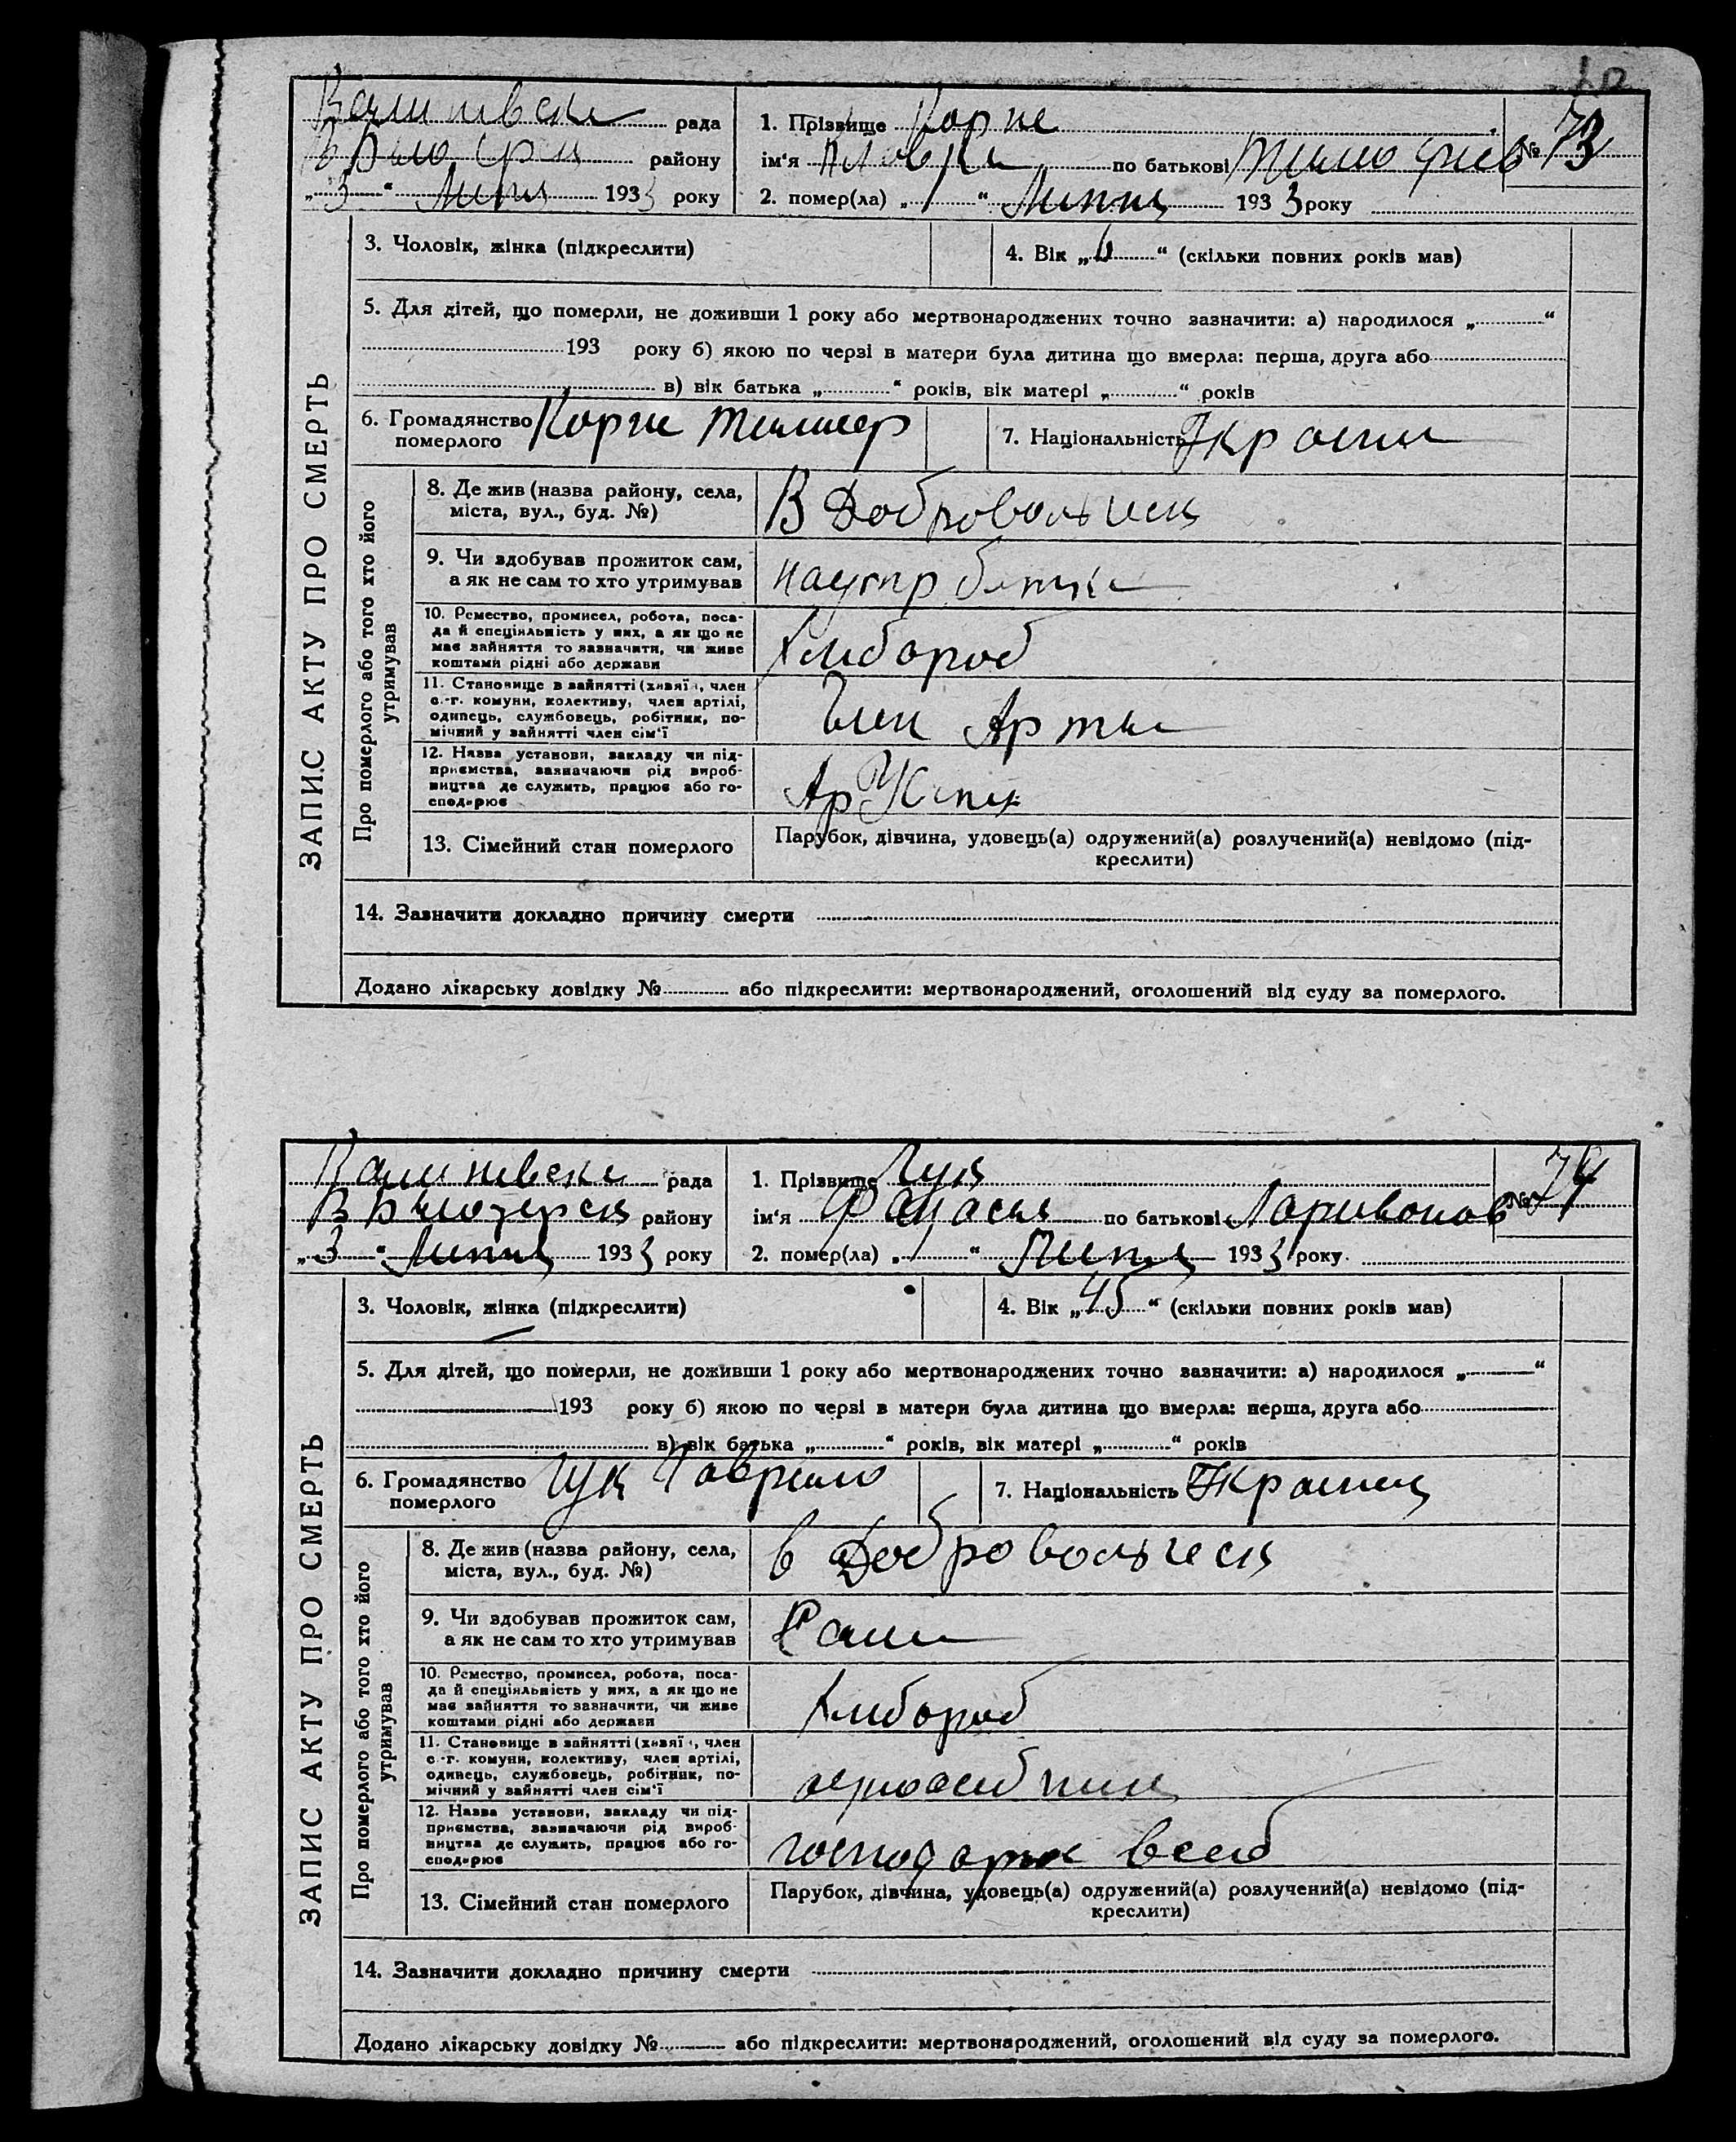 рада
району
„3“ Липня 1933 року
1. Прізвище Корне
ім'я по батькові
№ 73
2. помер(ла) „1“ Липня 1933 року
3. Чоловік, жінка (підкреслити)
4. Вік „6“ (скільки повних років мав)
5. Для дітей, що померли, не доживши 1 року або мертвонароджених точно зазначити: а) народилося „ “
193 року б) якою по черзі в матери була дитина що вмерла: перша, друга або
в) вік батька „ “ років, вік матері „ “ років
6. Громадянство померлого Корне
7. Національність
ЗАПИС АКТУ ПРО СМЕРТЬ
Про померлого або того хто його
утримував
8. Де жив (назва району, села,
міста, вул., буд. №)
В
9. Чи здобував прожиток сам,
а як не сам то хто утримував
10. Ремество, промисел, робота, поса-
да й спеціяльність у них, а як що не
має зайняття то зазначити, чи живе
коштами рідні або держави
Хлибороб
11. Становище в зайнятті (хазяїн, член
с.-г. комуни, колективу, член артілі,
одинець, службовець, робітник, по-
мічний у зайнятті член сім'ї
Член Артили
12. Назва установи, закладу чи під-
приємства, зазначаючи рід вироб-
ництва де служить, працює або го-
сподарює
13. Сімейний стан померлого
Парубок, дівчина, удовець(а) одружений(а) розлучений(а) невідомо (під-
креслити)
14. Зазначити докладно причину смерти
Додано лікарську довідку № або підкреслити: мертвонароджений, оголошений від суду за померлого.
рада
В району
„3“ Липня 1933 року
1. Прізвище Гук
ім'я Фанасия по батькові Ларивонов
№ 74
2. помер(ла) „1“ Липня 1933 року
3. Чоловік, жінка (підкреслити)
4. Вік „45“ (скільки повних років мав)
5. Для дітей, що померли, не доживши 1 року або мертвонароджених точно зазначити: а) народилося „ “
193 року б) якою по черзі в матери була дитина що вмерла: перша, друга або
в) вік батька „ “ років, вік матері „ “ років
6. Громадянство померлого Гук Гаврило
7. Національність
ЗАПИС АКТУ ПРО СМЕРТЬ
Про померлого або того хто його
утримував
8. Де жив (назва району, села,
міста, вул., буд. №)
в
9. Чи здобував прожиток сам,
а як не сам то хто утримував
Сами
10. Ремество, промисел, робота, поса-
да й спеціяльність у них, а як що не
має зайняття то зазначити, чи живе
коштами рідні або держави
Хлибороб
11. Становище в зайнятті (хазяїн, член
с.-г. комуни, колективу, член артілі,
одинець, службовець, робітник, по-
мічний у зайнятті член сім'ї
12. Назва установи, закладу чи під-
приємства, зазначаючи рід вироб-
ництва де служить, працює або го-
сподарює
13. Сімейний стан померлого
Парубок, дівчина, удовець(а) одружений(а) розлучений(а) невідомо (під-
креслити)
14. Зазначити докладно причину смерти
Додано лікарську довідку № або підкреслити: мертвонароджений, оголошений від суду за померлого.